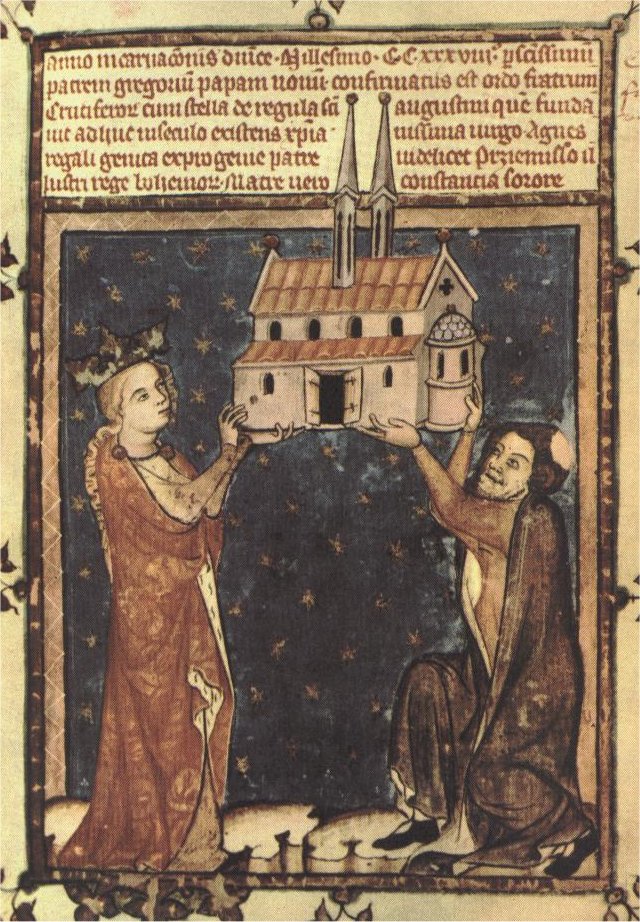 anno incarnacōnis dn̄ice · Millesimo · CC xxxviii · p̄ scissimū
patrem gregoriū papam nonū · confirmatus est ordo fratrum
Cruciferoꝝ cum stella de regula sc̄i augustini quē funda
uit adhuc in seculo existens xp̄ia nissima uirgo Agnes
regali genita ex progenie patre uidelicet Przemisso il
lustri rege bohemoꝝ · Matre uero constancia sorore